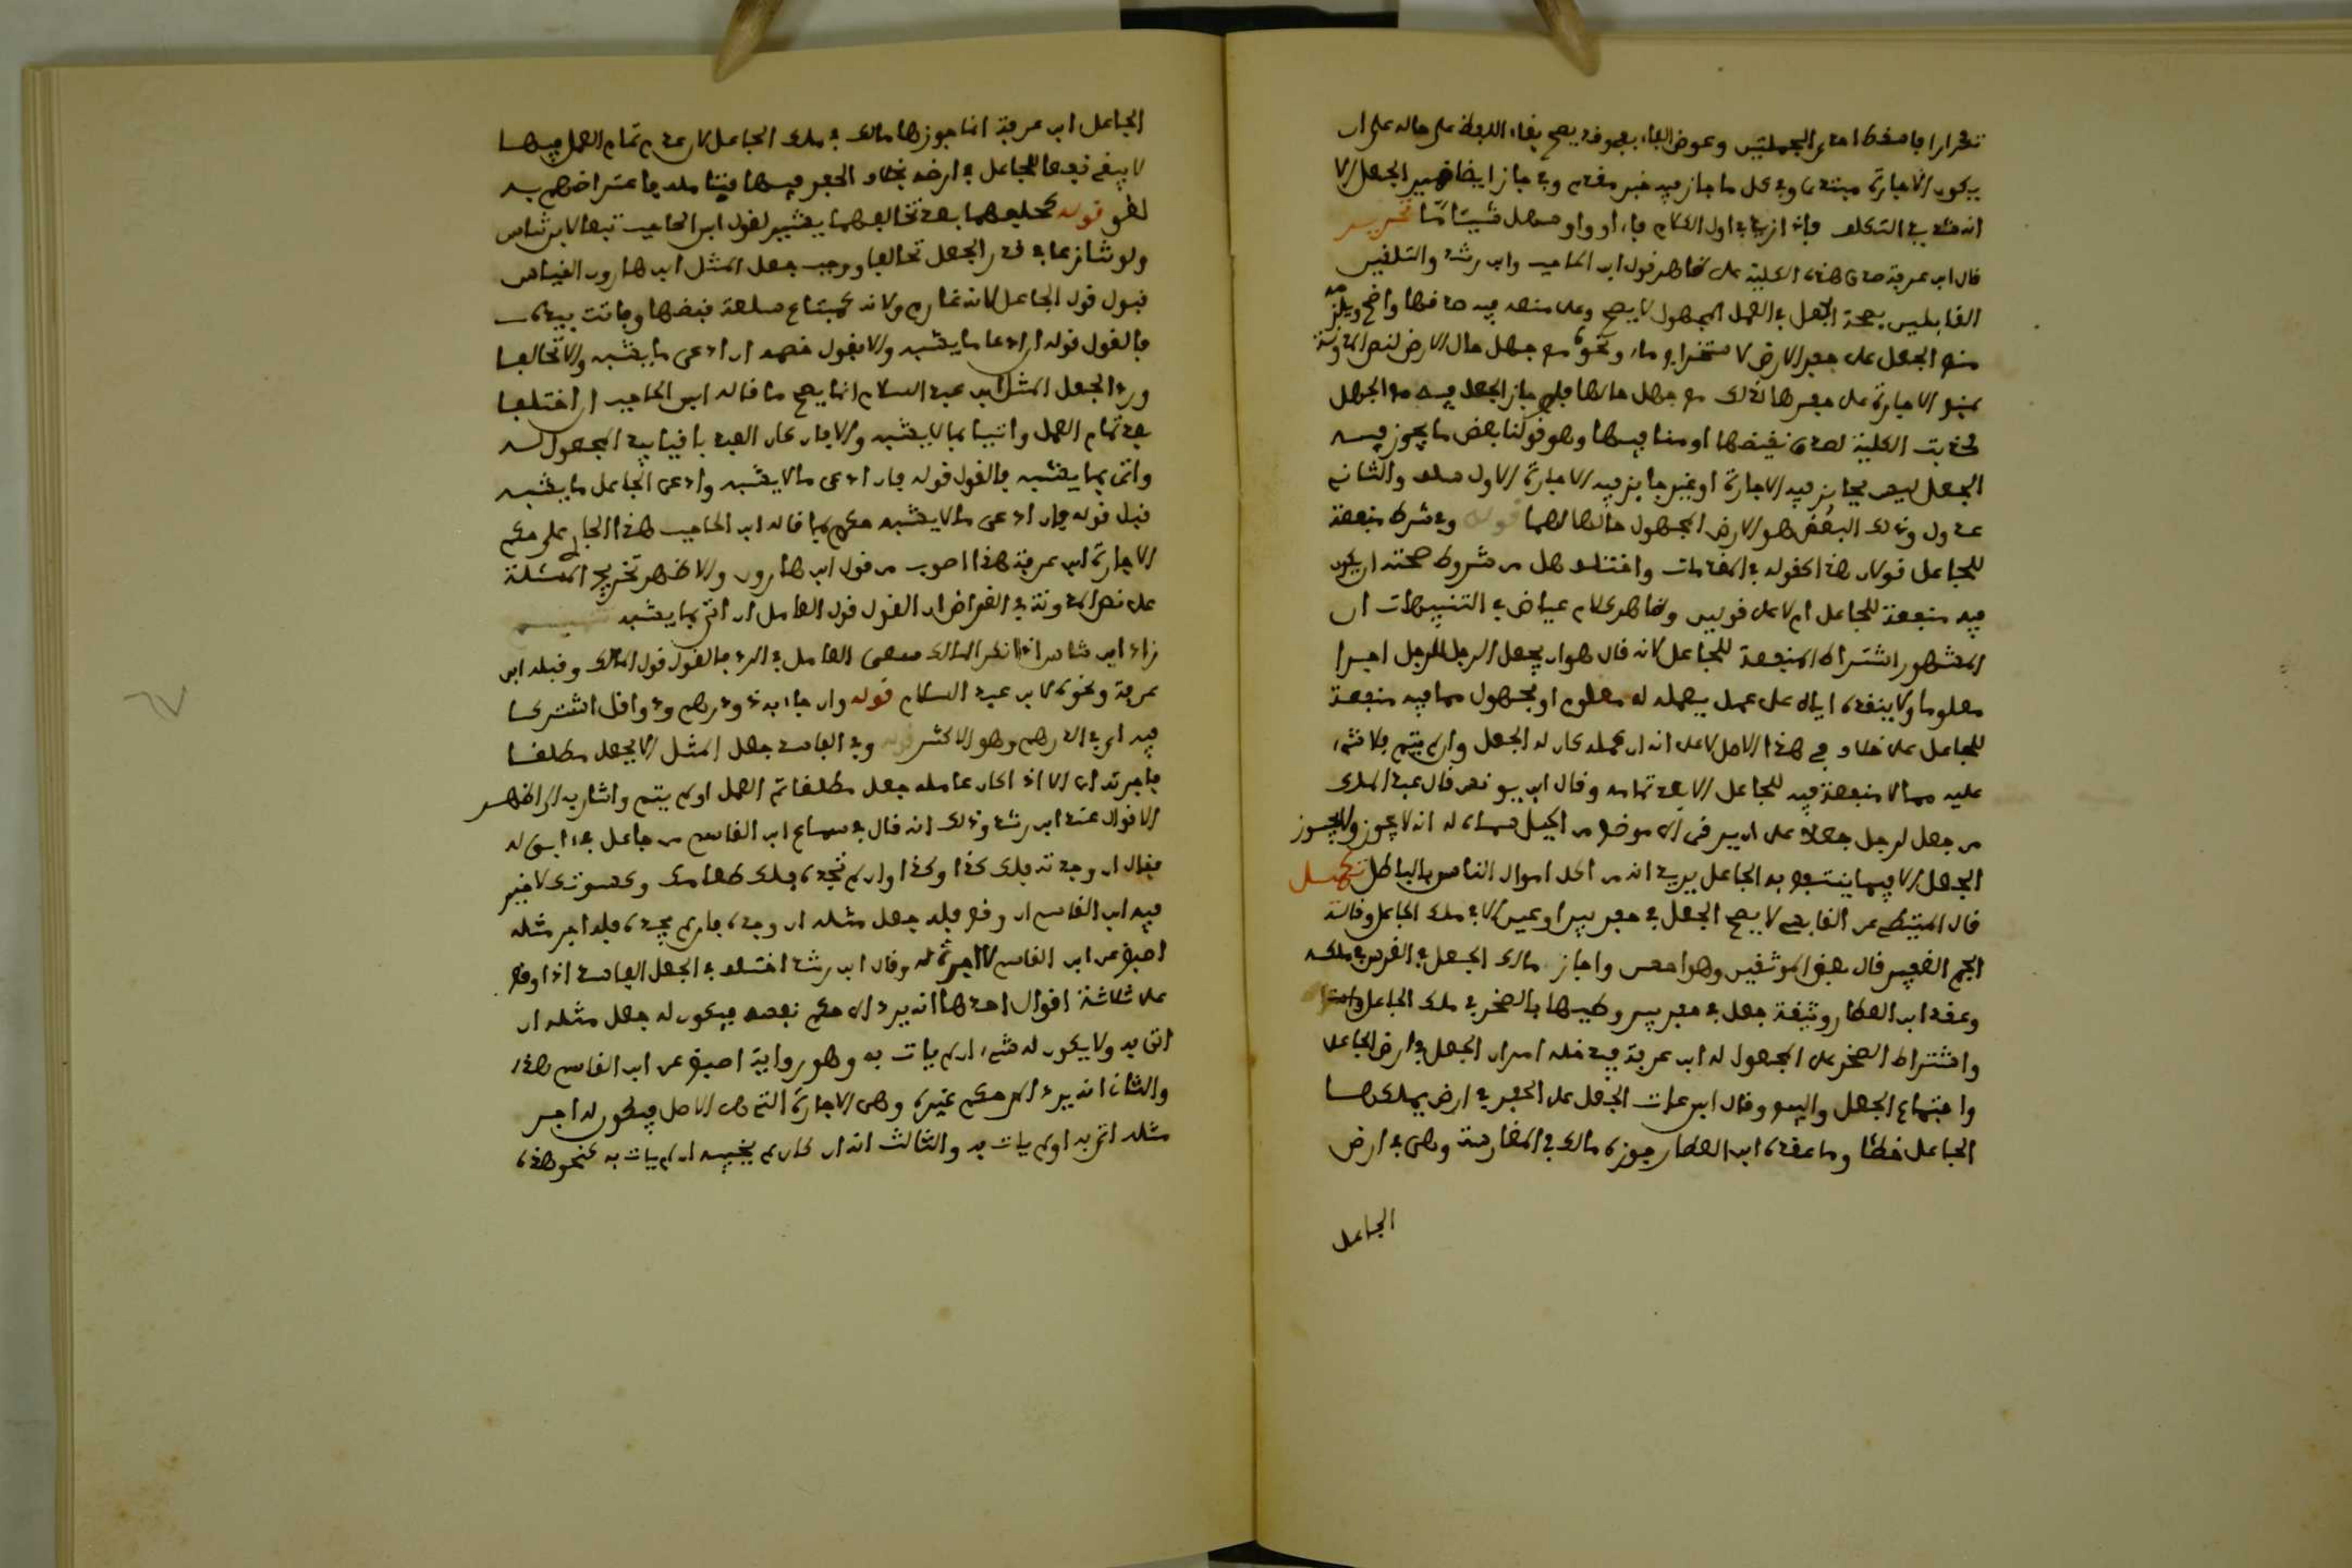 تكرارا فاسقط احدى الجملتين وعوض الفاء بعجوفه يصح بقاء اللفظ على حاله على ان
يكون الاجارة مبتدءا وفي كل ما جاز فيه خبر مقدم وفي جاز ايضا ضمير الجعل الا
انه في التكلف فاذا اول الكلام فاء او واو وسهل شيئا ما تحرير
قال ابن عرفة صدق هذه الكلية على ظاهر قول ابن الحاجب وابن رشد والتلقين
القابلين بصحة الجعل في العمل المجهول لا يصح وعلى منعه فيه صدقها واضح ويلزم
منع الجعل على حفر الارض لاستخراج ماء ونحوه مع جهل حال الارض لنص المدونة
بمنع الاجارة على حفرها كذلك مع جهل حالها فلو جاز الجعل فيه مع الجهل
كذبت الكلية لصدق نقيضها او منافيها وهو قولنا بعض ما يجوز فيه
الجعل ليس بجايز فيه الاجارة او غير جايز فيه الاجارة الاول سلب والثاني
عدول وذلك البعض هو الارض المجهول حالها لهما قوله وفي شرط منفعة
للجاعل قولان هذا كقوله في المقدمات واختلف هل من شروط صحته ان يكون
فيه منفعة للجاعل ام لا على قولين وظاهر كلام عياض في التنبيهات ان
المشهور اشتراط المنفعة للجاعل لانه قال هو ان يجعل الرجل للرجل اجرا
معلوما ولا ينقده اياه على عمل يعمله له معلوم او مجهول مما فيه منفعة
للجاعل على خلاف في هذا الاصل على انه ان عمله كان له الجعل وان لم يتم فلا شيء
عليه مما لا منفعة فيه للجاعل الا بعد تمامه وقال ابن يونس قال عبد الملك
من جعل لرجل جعلا على ان يرقى الى موضع من الجبل سماه له انه لا يجوز ولا يجوز
الجعل الا فيما ينتفع به الجاعل يريد انه من اكل اموال الناس بالباطل تكميل
قال المتيطي عن القابسي لا يصح الجعل في حفر بير او عين الا في ملك الجاعل وقاله
الجم الغفير قال بعض الموثقين وهو احسن واجاز مالك الجعل في الغرس في ملكه
وعقد ابن العطار وثيقة جعل في حفر بير وطيها بالصخر في ملك الجاعل
واشتراط الصخر على المجعول له ابن عرفة فيدخله امران الجعل في ارض الجاعل
واجتماع الجعل والبيع وقال ابن عات الجعل على الحفر في ارض يملكها
الجاعل خطئا وما عقده ابن العطار جوزه مالك في المغارسة وهي في ارض
الجاعل
الجاعل ابن عرفة انما جوزها مالك في ملك الجاعل لان عدم تمام العمل فيها
لا يبقى نفعا للجاعل في ارضه بخلاف الحفر فيها فيتا ملد فاعتراضهم به
لغو قوله كحلفهما بعد تخالفهما يشير لقول ابن الحاجب تبعا لابن شاس
ولو تنازعا في قدر الجعل تحالفا ووجب جعل المثل ابن هارون القياس
قبول قول الجاعل لانه غارم ولانه كمبتاع سلعة قبضها وفاتت بيده
فالقول قوله ان ادعا ما يشبه والا فقول خصمه ان ادعى ما يشبه والا تحالفا
ورد الجعل المثل ابن عبد السلام انما يصح ما قاله ابن الحاجب ان اختلفا
بعد تمام العمل واتيا بما لا يشبه والا فان كان العبد باقيا بيد المجعول له
واتى بما يشبه فالقول قوله فان ادعى ما لا يشبه وادعى الجاعل ما يشبه
قبل قوله فان ادعى ما لا يشبه حكم بما قاله ابن الحاجب هذا الجار على حكم
الاجارة ابن عرفة هذا اصوب من قول ابن هارون والاظهر تخريج المسئلة
على نص المدونة في القراض ان القول قول العامل ان اتى بما يشبه
زاد ابن شاس اذا انكر المالك سعي العامل في الرد فالقول قول المالك وقبله ابن
عرفة ونحوه لابن عبد السلام قوله وان جاء بذي درهم وذو اقل اشتركا
فيه اي في الدرهم وهو الاكثر قوله وفي الفاسد جعل المثل الا بجعل مطلقا
فاجرته اي الا اذا كان عامله جعل مطلقا تم العمل او لم يتم واشار به الى اظهر
الاقوال عند ابن رشد وذلك انه قال في سماع ابن القاسم من جاعل في ابق له
فقال ان وجدته فلك كذا وكذا وان لم تجده فلك طعامك وكسوتك لا خير
فيه ابن القاسم ان وقع فله جعل مثله ان وجده فان لم يجده فله اجر مثله
اصبغ عن ابن القاسم لا اجرة له وقال ابن رشد اختلف في الجعل الفاسد اذا وقع
على ثلاثة اقوال احدها انه يرد الى حكم نفسه فيكون له جعل مثله ان
اتى به ولا يكون له شيء ان لم يات به وهو رواية اصبغ عن ابن القاسم هذه
والثاني انه يرد الى حكم غيره وهي الاجارة التي هي الاصل فيكون له اجر
مثله اتى به او لم يات به والثالث انه ان كان لم يخيبه ان لم يات به كنحو هذه